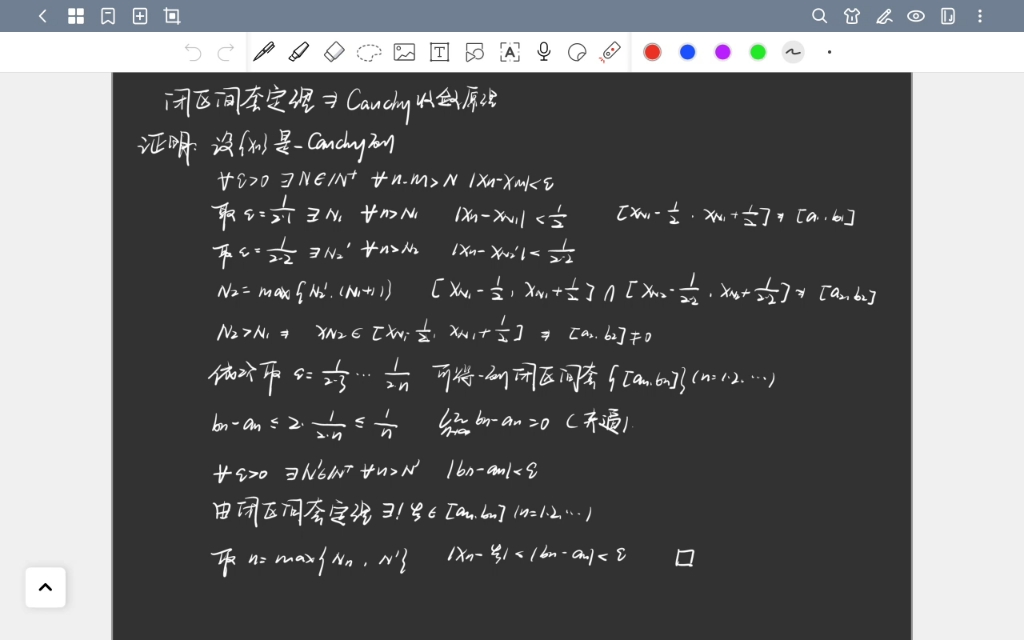 闭区间套定理⇒Cauchy收敛原理
证明: 设{xn}是一Cauchy列
∀ε>0 ∃N∈N⁺ ∀n.m>N |xn-xm|<ε
取ε=1/2·1 ∃N₁ ∀n>N₁ |xn-xN₁|<1/2 [xN₁-1/2, xN₁+1/2]⇒[a₁.b₁]
取ε=1/2·2 ∃N₂' ∀n>N₂ |xn-xN₂'|<1/2·2
N₂=max{N₂'.(N₁+1)} [xN₁-1/2, xN₁+1/2]∩[xN₂-1/2·2, xN₂+1/2·2]⇒[a₂.b₂]
N₂>N₁⇒ xN₂∈[xN₁-1/2, xN₁+1/2]⇒[a₂.b₂]≠0
依次取ε=1/2·3…1/2·n 可得一列闭区间套{[an.bn]}(n=1.2.…)
bn-an≤2·1/2·n≤1/n lim n→∞ bn-an=0 (夹逼).
∀ε>0 ∃N'∈N⁺ ∀n>N' |bn-an|<ε
由闭区间套定理∃!ξ∈[an.bn](n=1.2.…)
取n=max{Nn, N'} |xn-ξ|<|bn-an|<ε □